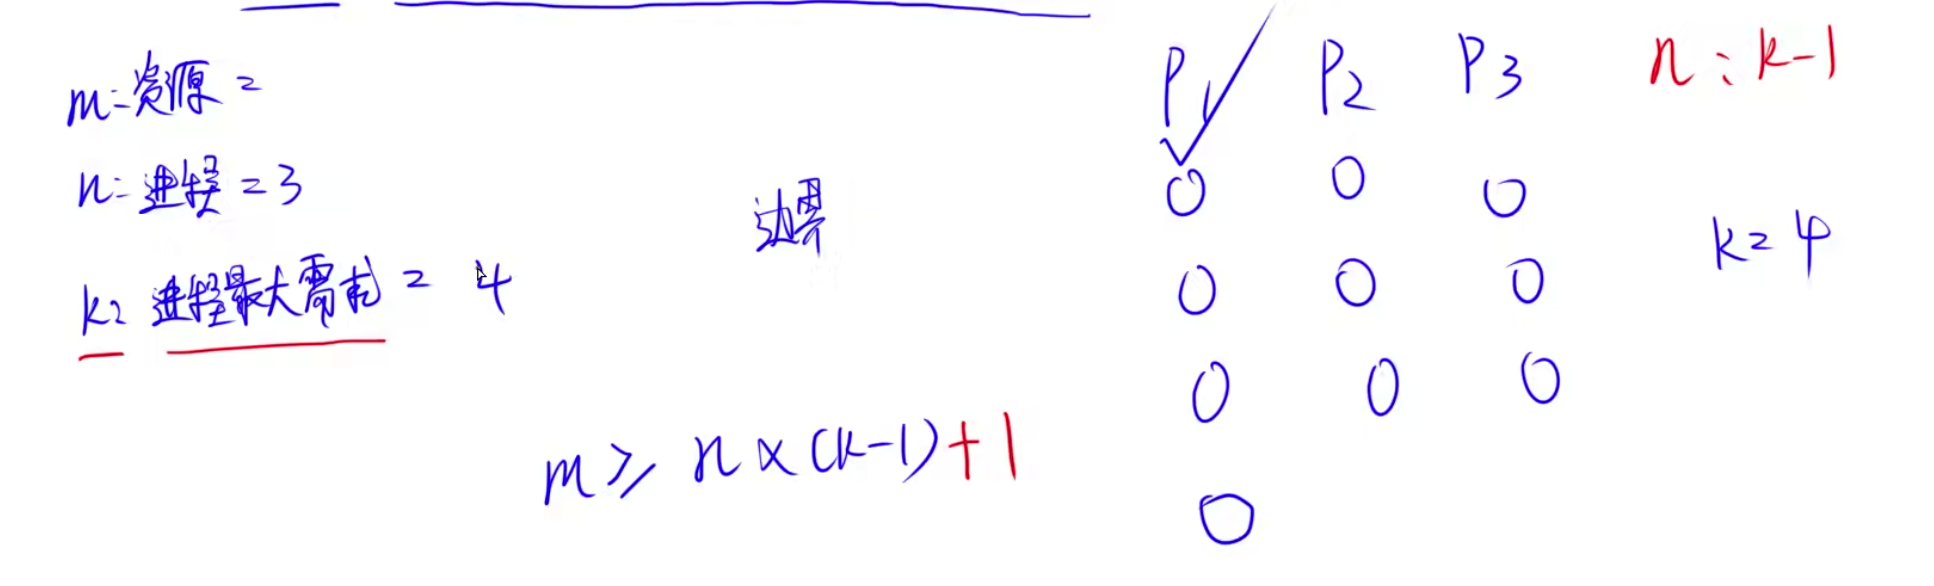 m=资源=
n=进程=3
k=进程最大需求= 4
边界
m≥ n×(k-1)+1
P1 P2 P3
O O O
O O O
O O O
O
n:k-1
k=4